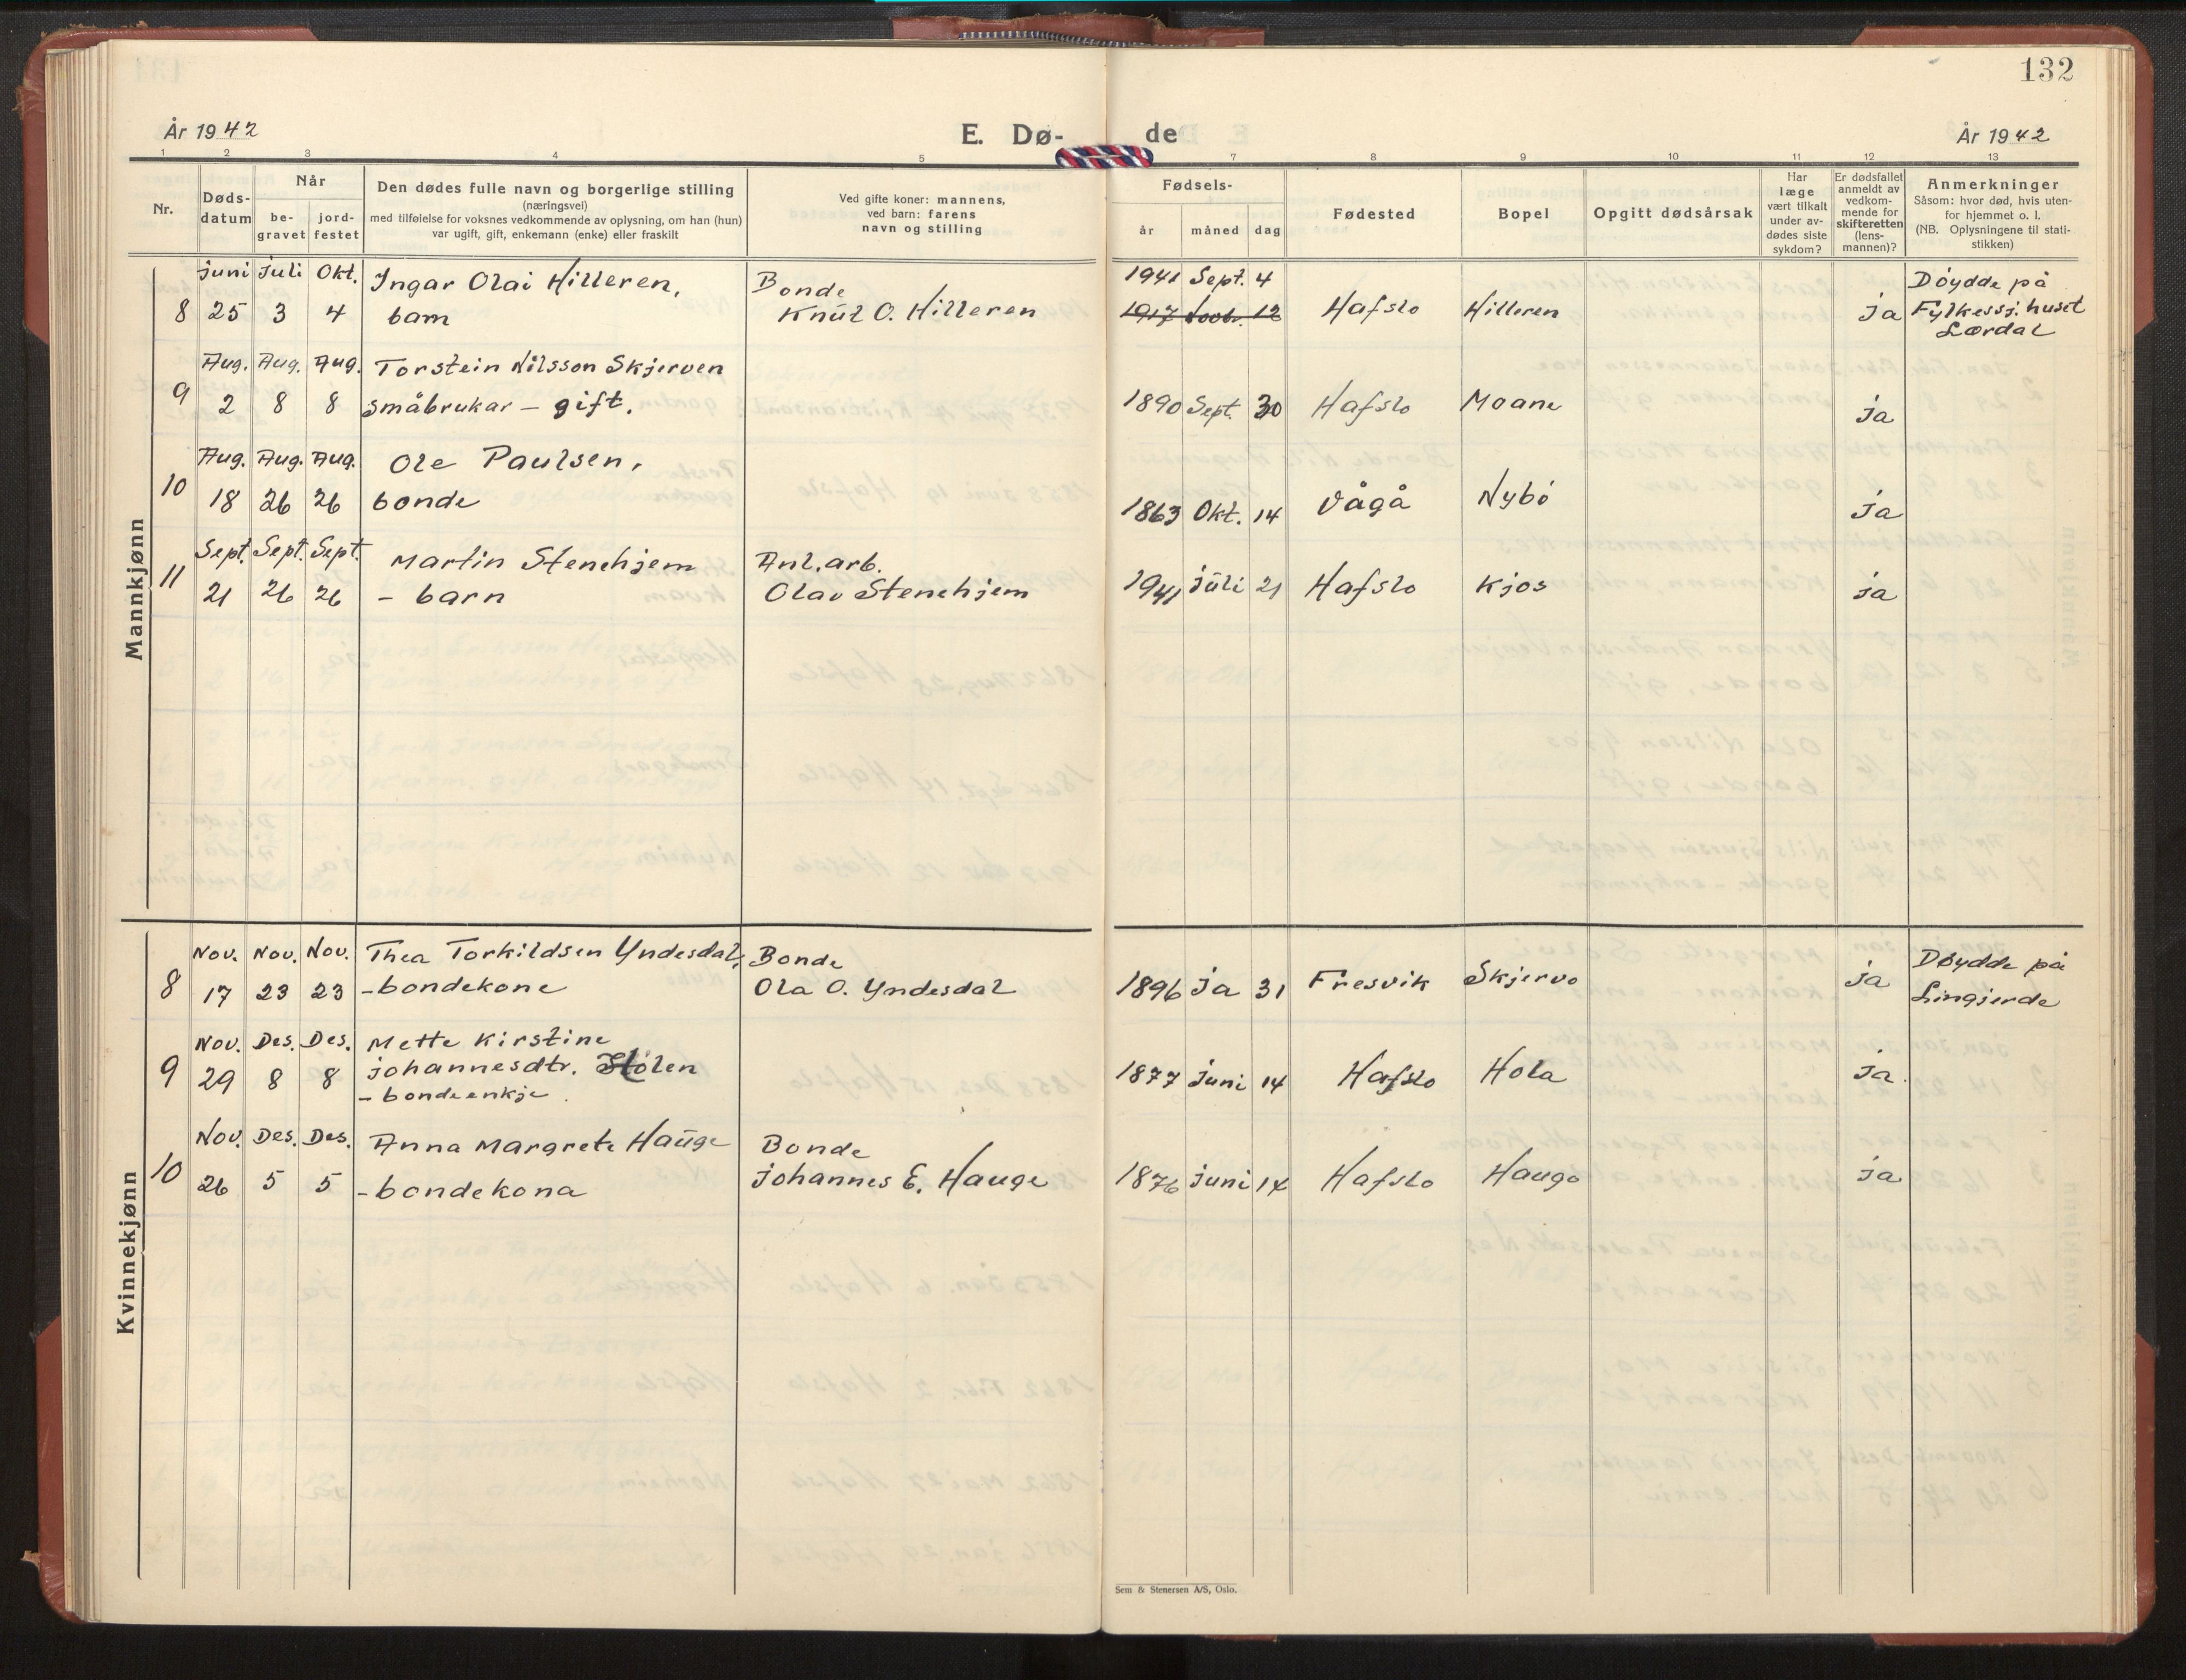 132
År 1942
E. Dø-
de
År 1942
1 2 3 4 5 7 8 9 10 11 12 13
Nr.
Døds-
datum
Når
be-
gravet
jord-
festet
Den dødes fulle navn og borgerlige stilling
(næringsvei)
med tilføielse for voksnes vedkommende av oplysning, om han (hun)
var ugift, gift, enkemann (enke) eller fraskilt
Ved gifte koner: mannens,
ved barn: farens
navn og stilling
Fødsels-
år måned dag
Fødested
Bopel
Opgitt dødsårsak
Har
læge
vært tilkalt
under av-
dødes siste
sykdom?
Er dødsfallet
anmeldt av
vedkom-
mende for
skifteretten
(lens-
mannen)?
Anmerkninger
Såsom: hvor død, hvis uten-
for hjemmet o. l.
(NB. Oplysningene til stati-
stikken)
Mannkjønn
juni Juli Okt. Ingar Olai Hilleren, Bonde 1941 Sept. 4 Døydde på
8 25 3 4 barn Knut O. Hilleren 1917 12 Hafslo Hilleren ja Fylkessj.huset
Lærdal
Aug. Aug. Aug. Torstein Nilsson Skjerven
9 2 8 8 småbrukar – gift. 1890 Sept. 30 Hafslo Moane ja
Aug. Aug. Aug. Ole Paulsen,
10 18 26 26 bonde 1863 Okt. 14 Vågå Nybø ja
Sept. Sept. Sept. Martin Stenehjem Anl.arb.
11 21 26 26 – barn Olav Stenehjem 1941 Juli 21 Hafslo Kjos ja
Kvinnekjønn
Nov. Nov. Nov. Thea Torkildsen Yndesdal, Bonde Døydde på
8 17 23 23 –bondekone Ola O. Yndesdal 1896 Ja 31 Fresvik Skjervo ja Lingjerde
Nov. Des. Des. Mette Kirstine
9 29 8 8 Johannesdtr. Hølen 1877 Juni 14 Hafslo Hola ja.
– bondeenkje
Nov. Des. Des. Anna Margrete Hauge Bonde
10 26 5 5 –bondekona Johannes E. Hauge 1876 Juni 14 Hafslo Haugo ja
Sem & Stenersen A/S, Oslo.